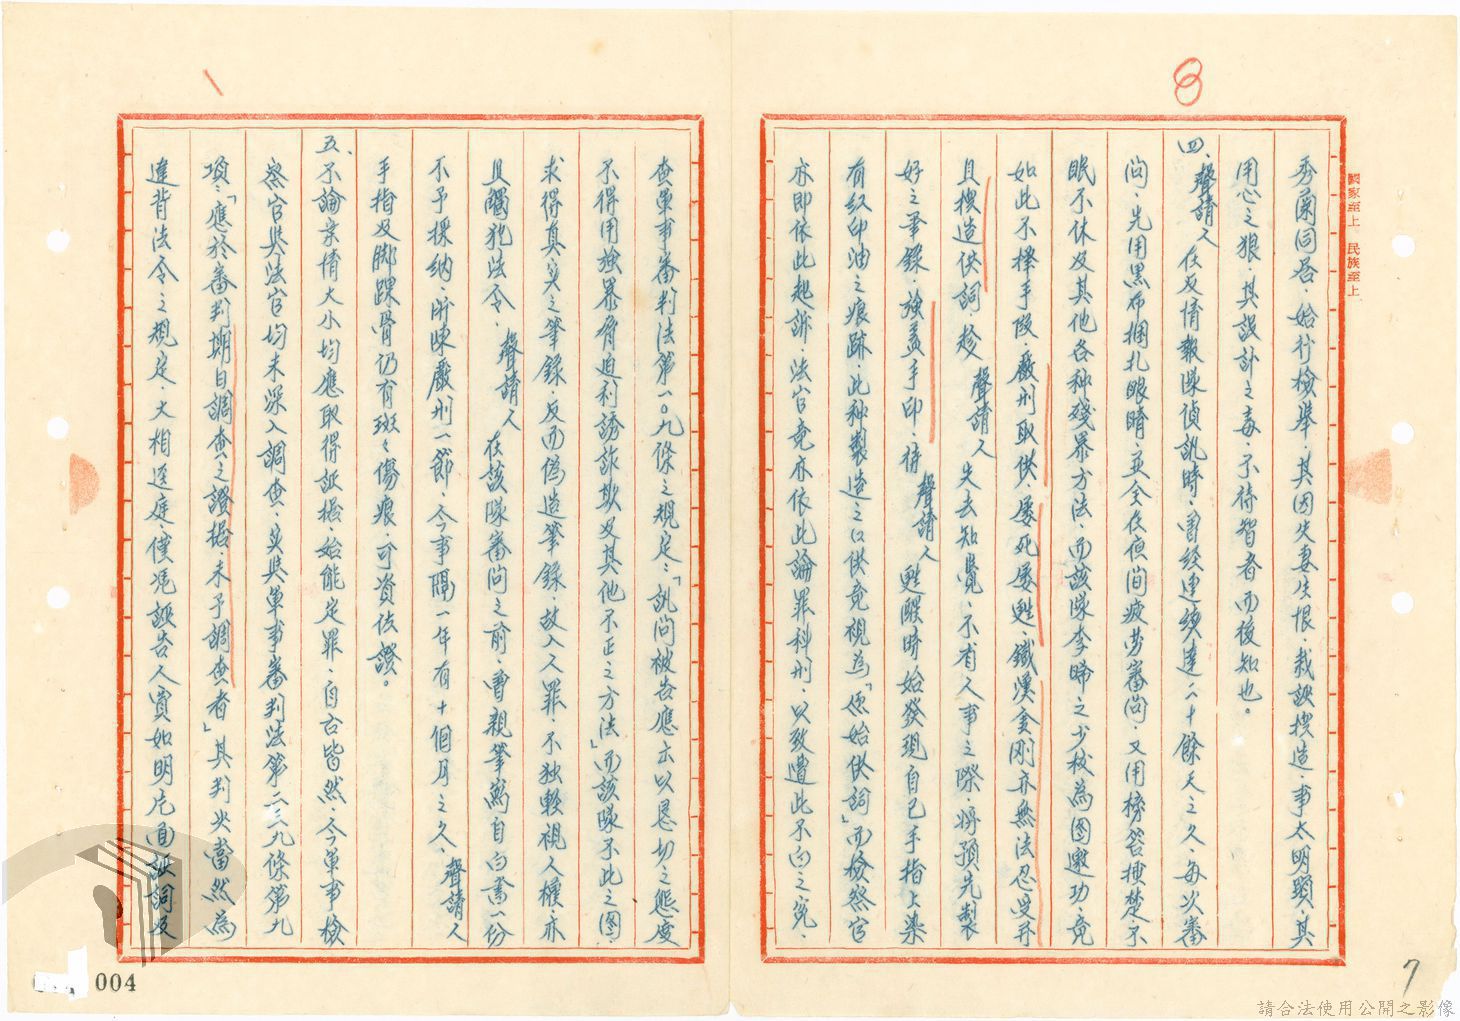 國家至上 民族至上
8
秀蘭同居、始行檢舉、其因失妻生恨、栽誣捏造、事太明顯、其
用心之狠、其設計之毒、不待智者而後知也。
四、聲請人在反情報隊偵訊時、曾經連續達二十餘天之久、每次審
問、先用黑布捆扎眼睛、並全在夜間疲勞審問、又用榜笞捶楚、不
眠不休及其他各种殘暴方法、而該隊李晞之少校為圖邀功、竟
如此不擇手段、嚴刑取供、屡死屡甦、鐵漢金剛亦無法忍受、并
且捏造供詞、趁聲請人失去知覺、不省人事之際、將預先製
好之筆錄、強蓋手印、待聲請人甦醒時始發現自己手指上染
有红印油之痕跡、此种製造之口供竟視為「原始供詞」而檢察官
亦即依此起訴、法官竟亦依此論罪科刑、以致遭此不白之冤、
查軍事審判法第一〇九條之規定：「訊問被告應出以恳切之態度
不得用強暴脅迫利誘詐欺及其他不正之方法」而該隊不此之圖、
求得真实之筆錄、反而偽造筆錄、故入人罪、不独輕視人權、亦
且觸犯法令、聲請人在該隊審问之前、曾親筆寫自白書一份
不予採納、所陳嚴刑一節、今事隔一年有十個月之久、聲請人
手指及脚踝骨仍有斑々傷痕、可資佐證。
五、不論案情大小均應取得証据始能定罪、自古皆然、今軍事檢
察官與法官均未深入調查、实與軍事審判法第二三九條第九
項：「應於審判期日調查之證据、未予調查者」其判決當然為
違背法令之規定、大相逕庭、僅凭誣告人賞如明片面証詞及
004
7
請合法使用公開之影像